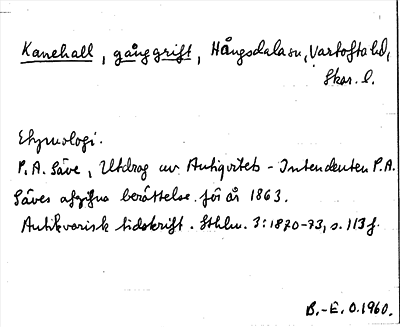 Kanehall, gånggrift, Hångsdala sn, Vartofta hd,
Skar. l.
Etymologi.
P. A. Säve, Utdrag ur Antiqvitets-Intendenten P. A.
Säves afgifna berättelse för år 1863.
Antikvarisk tidskrift. Sthlm. 3:1870-73, s. 113 f.
B.-E. O. 1960.